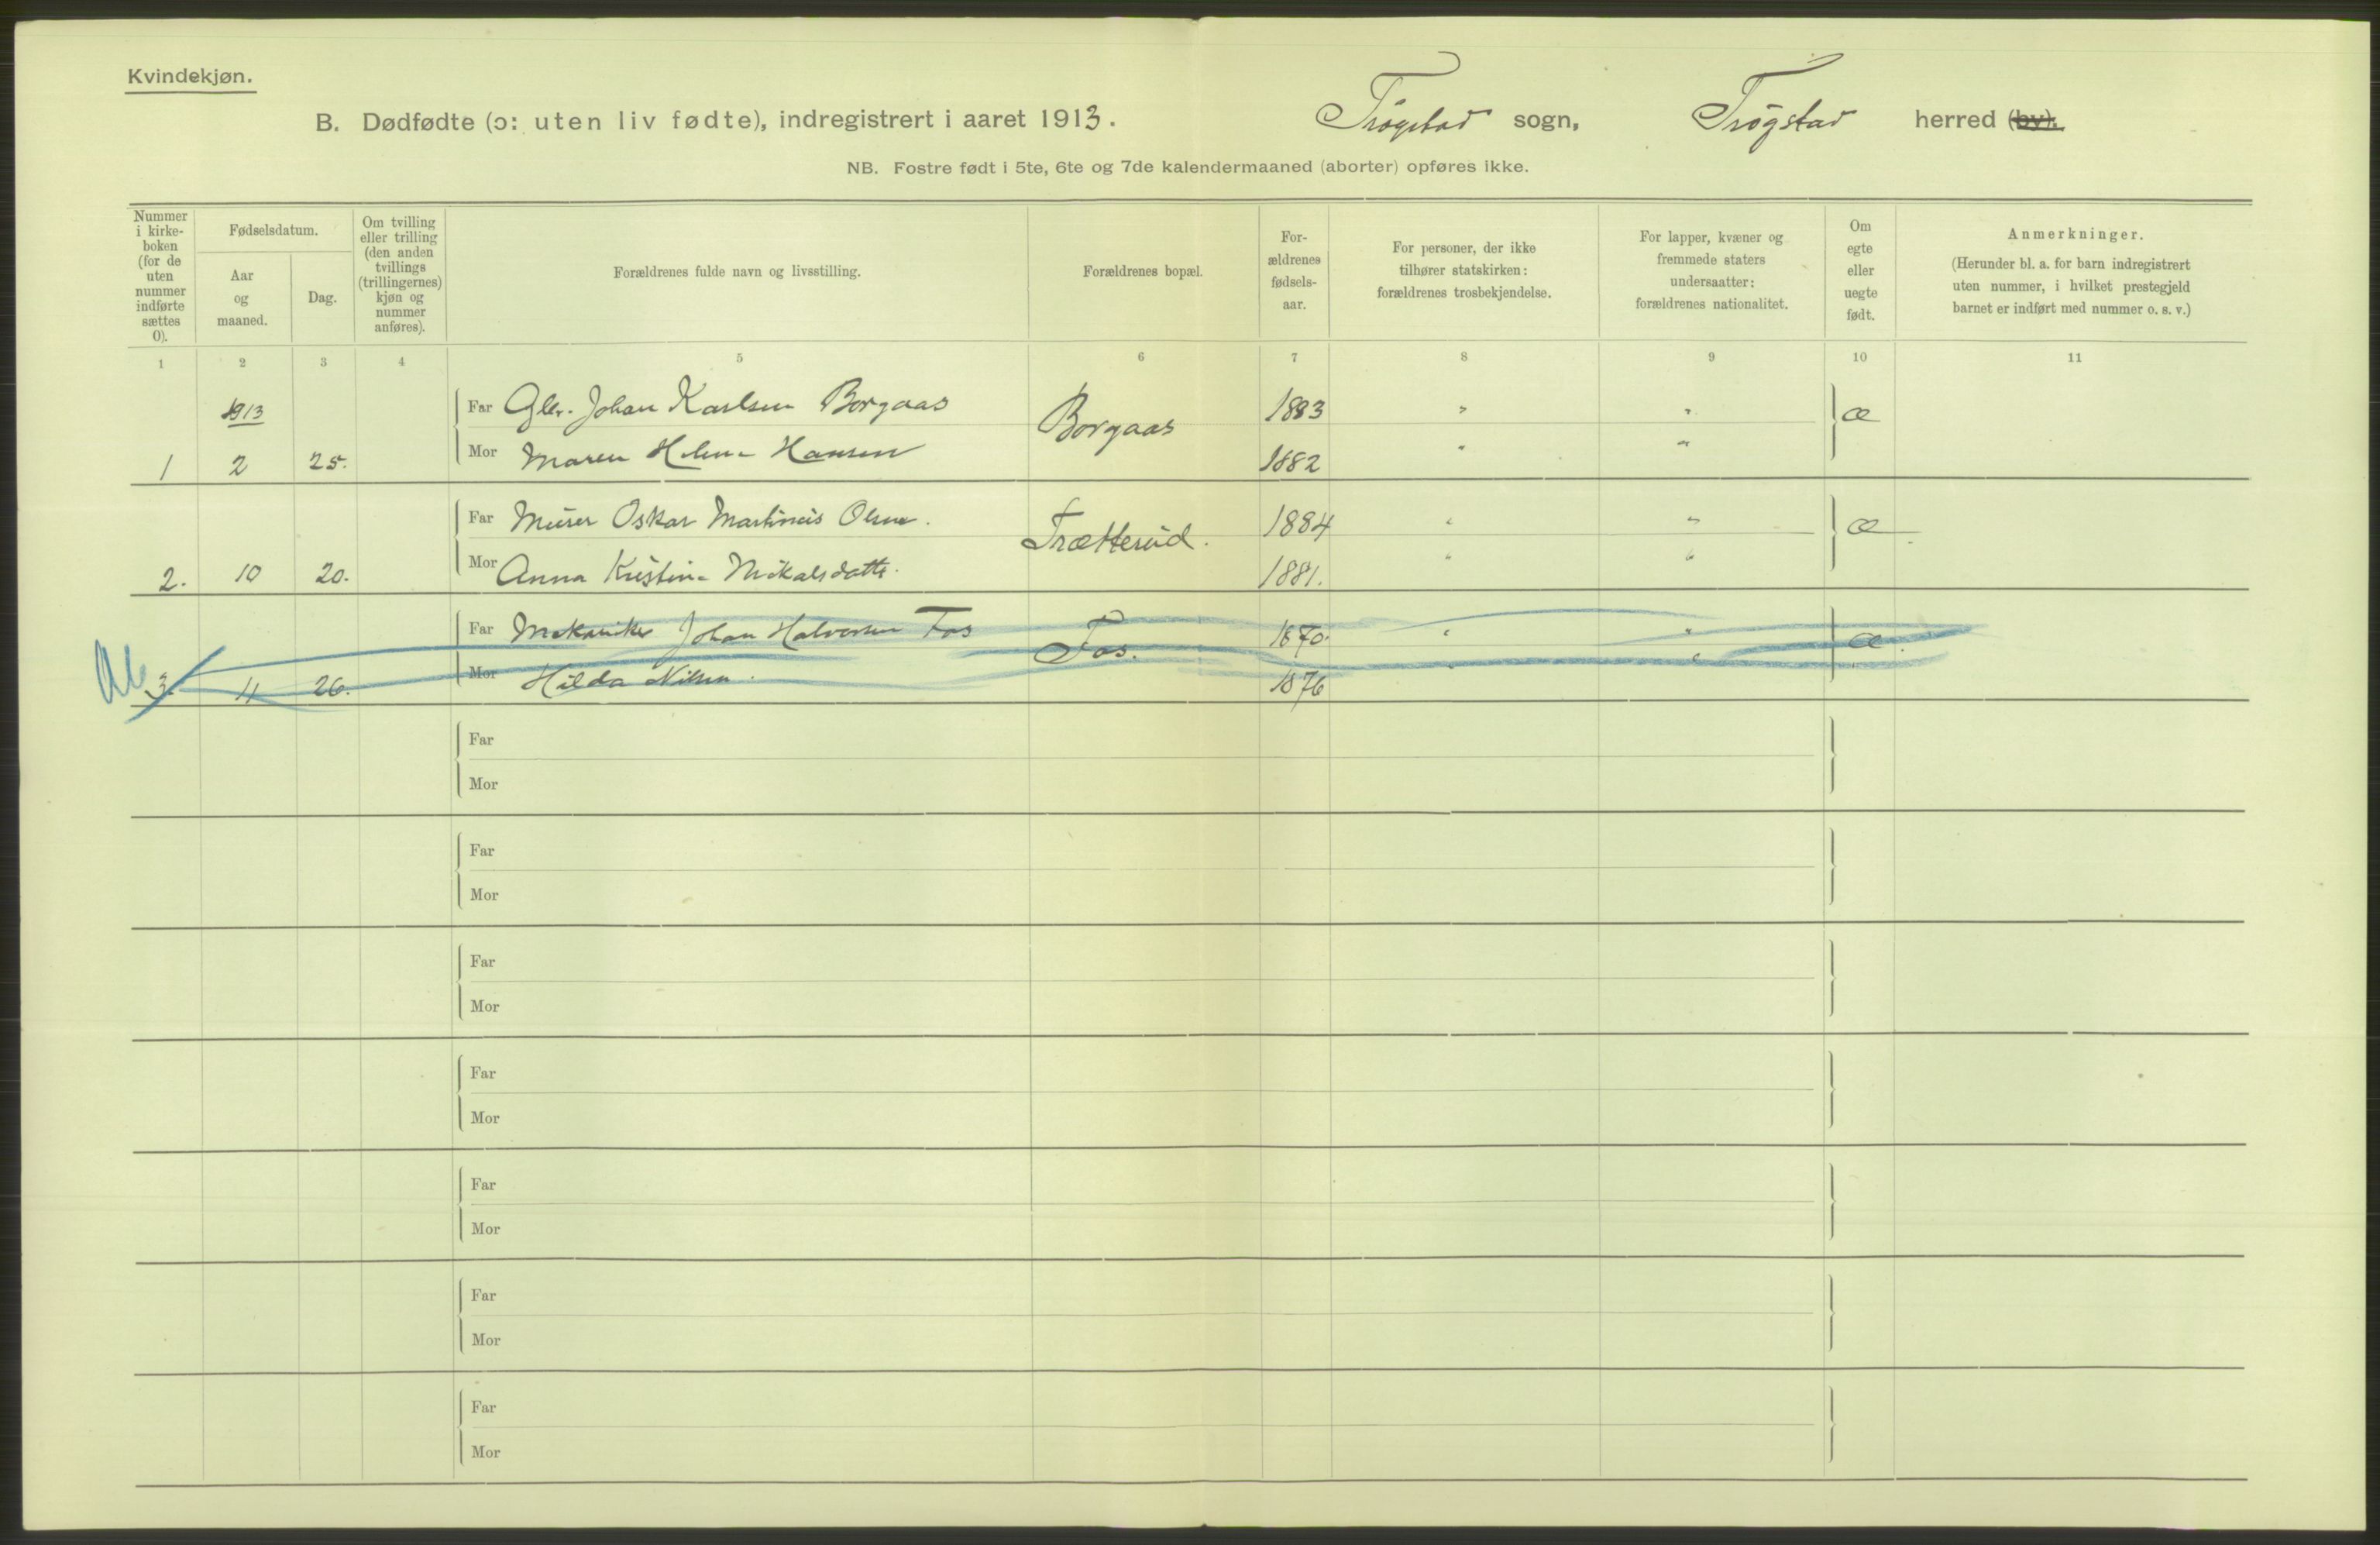 Kvindekjøn.
B. Dødfødte (ɔ: uten liv fødte), indregistrert i aaret 1913. Trøgstad sogn, Trøgstad herred (by).
NB. Fostre født i 5te, 6te og 7de kalendermaaned (aborter) opføres ikke.
Nummer i kirke-boken (for de uten nummer indførte sættes 0).
Fødselsdatum.
Aar og maaned.
Dag.
Om tvilling eller trilling (den anden tvillings (trillingernes) kjøn og nummer anføres).
Forældrenes fulde navn og livsstilling.
Forældrenes bopæl.
For-ældrenes fødsels-aar.
For personer, der ikke tilhører statskirken: forældrenes trosbekjendelse.
For lapper, kvæner og fremmede staters undersaatter: forældrenes nationalitet.
Om egte eller uegte født.
Anmerkninger.
(Herunder bl. a. for barn indregistrert uten nummer, i hvilket prestegjeld barnet er indført med nummer o. s. v.)
1 2 3 4 5 6 7 8 9 10 11
1913 Far Johan Karlsen Borgaas Borgaas 1883 " " æ
1 2 25. Mor Maren Helene Hansen 1882 " "
Far Murer Oskar Martinius Olsen. Trætterud. 1884 " " æ
2. 10 20. Mor Anna Kristine Mikalsdatter. 1881. " "
Far Mekaniker Johan Halvorsen Fos Fos. 1870. " " æ
3. 11 26. Mor Hilda Nilsen. 1876 " "
Far
Mor
Far
Mor
Far
Mor
Far
Mor
Far
Mor
Far
Mor
Far
Mor